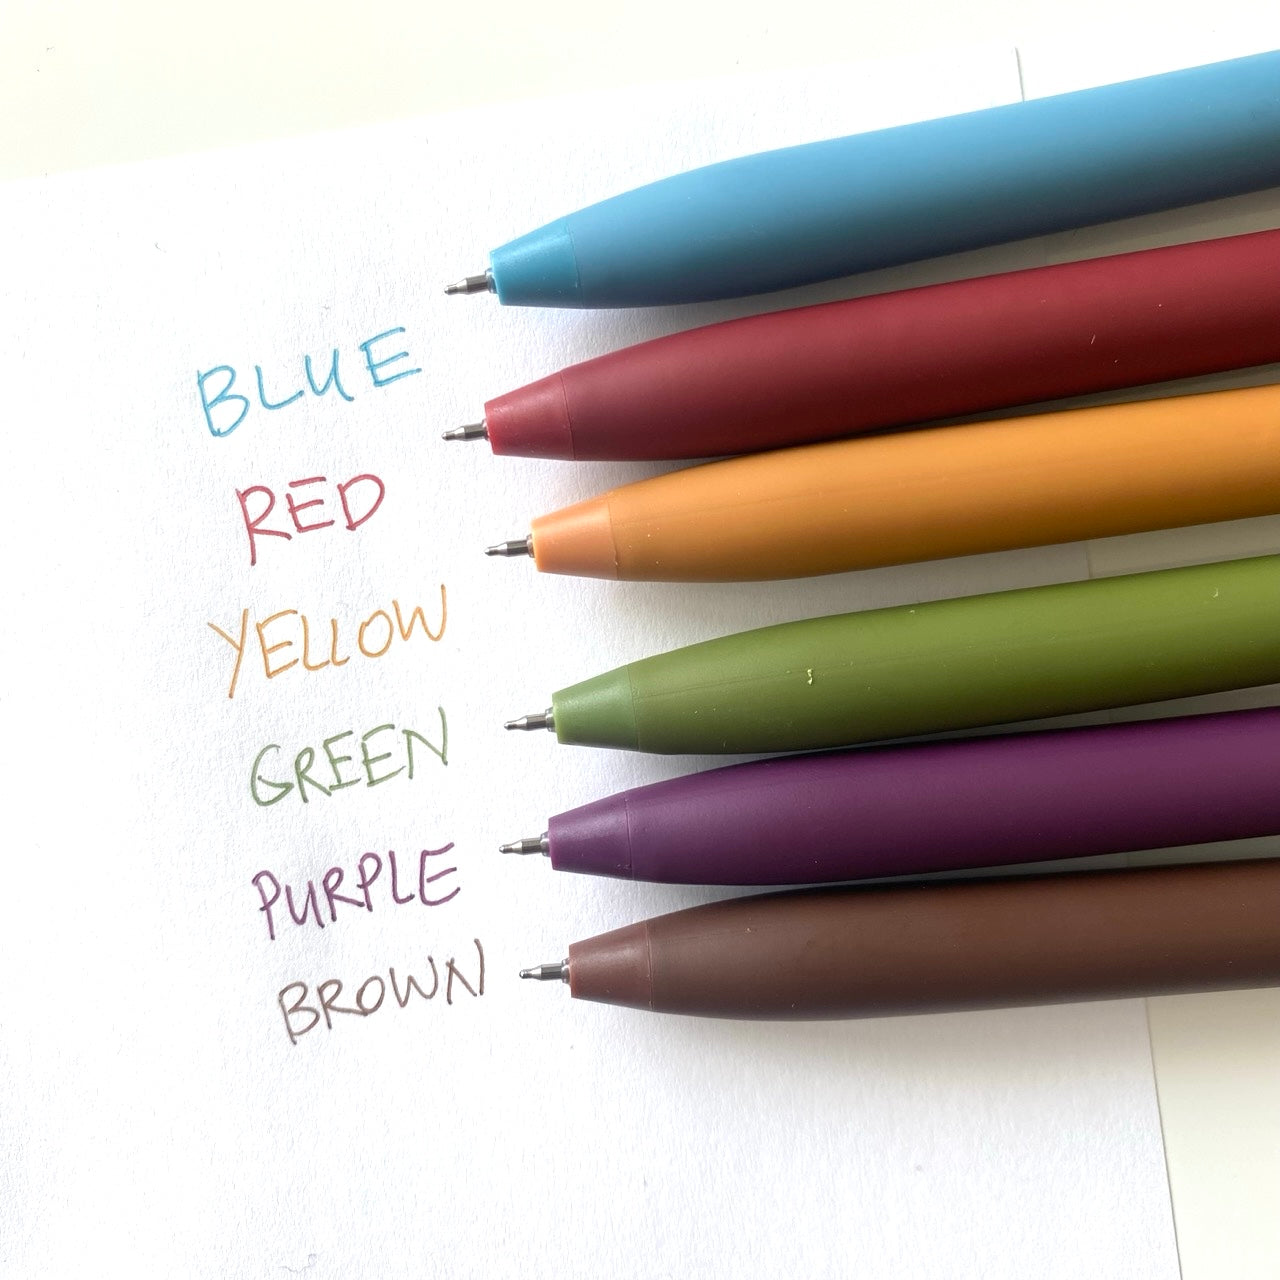 BLUE
RED
YELLOW
GREEN
PURPLE
BROWN